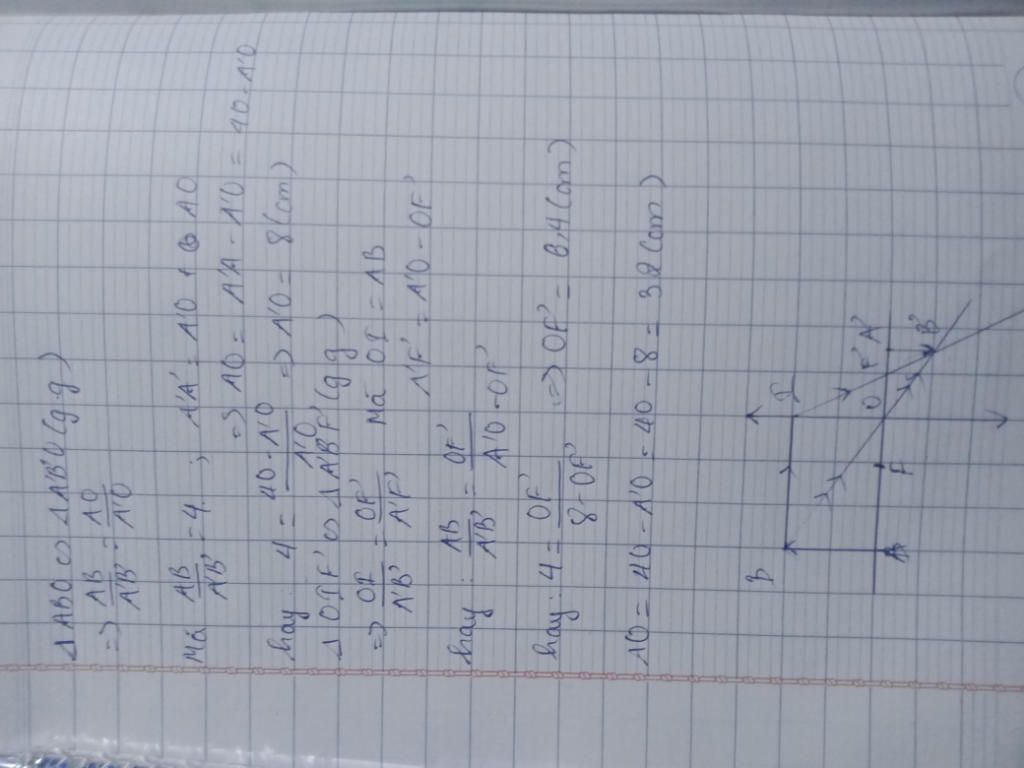 Δ ABO ∽ Δ A'B'O (g.g)
=> AB/A'B' = AO/A'O
Mà AB/A'B' = 4 ; AA' = A'O + AO
=> AO = A'A - A'O = 40 - A'O
hay: 4 = 40 - A'O/A'O => A'O = 8 (cm)
Δ OIF' ∽ Δ A'B'F' (g.g)
=> OI/A'B' = OF'/A'F' Mà OI = AB
A'F' = A'O - OF'
hay: AB/A'B' = OF'/A'O - OF'
hay: 4 = OF'/8 - OF' => OF' = 6,4 (cm)
AO = 40 - A'O = 40 - 8 = 32 (cm)
B I
O F' A'
A F B'